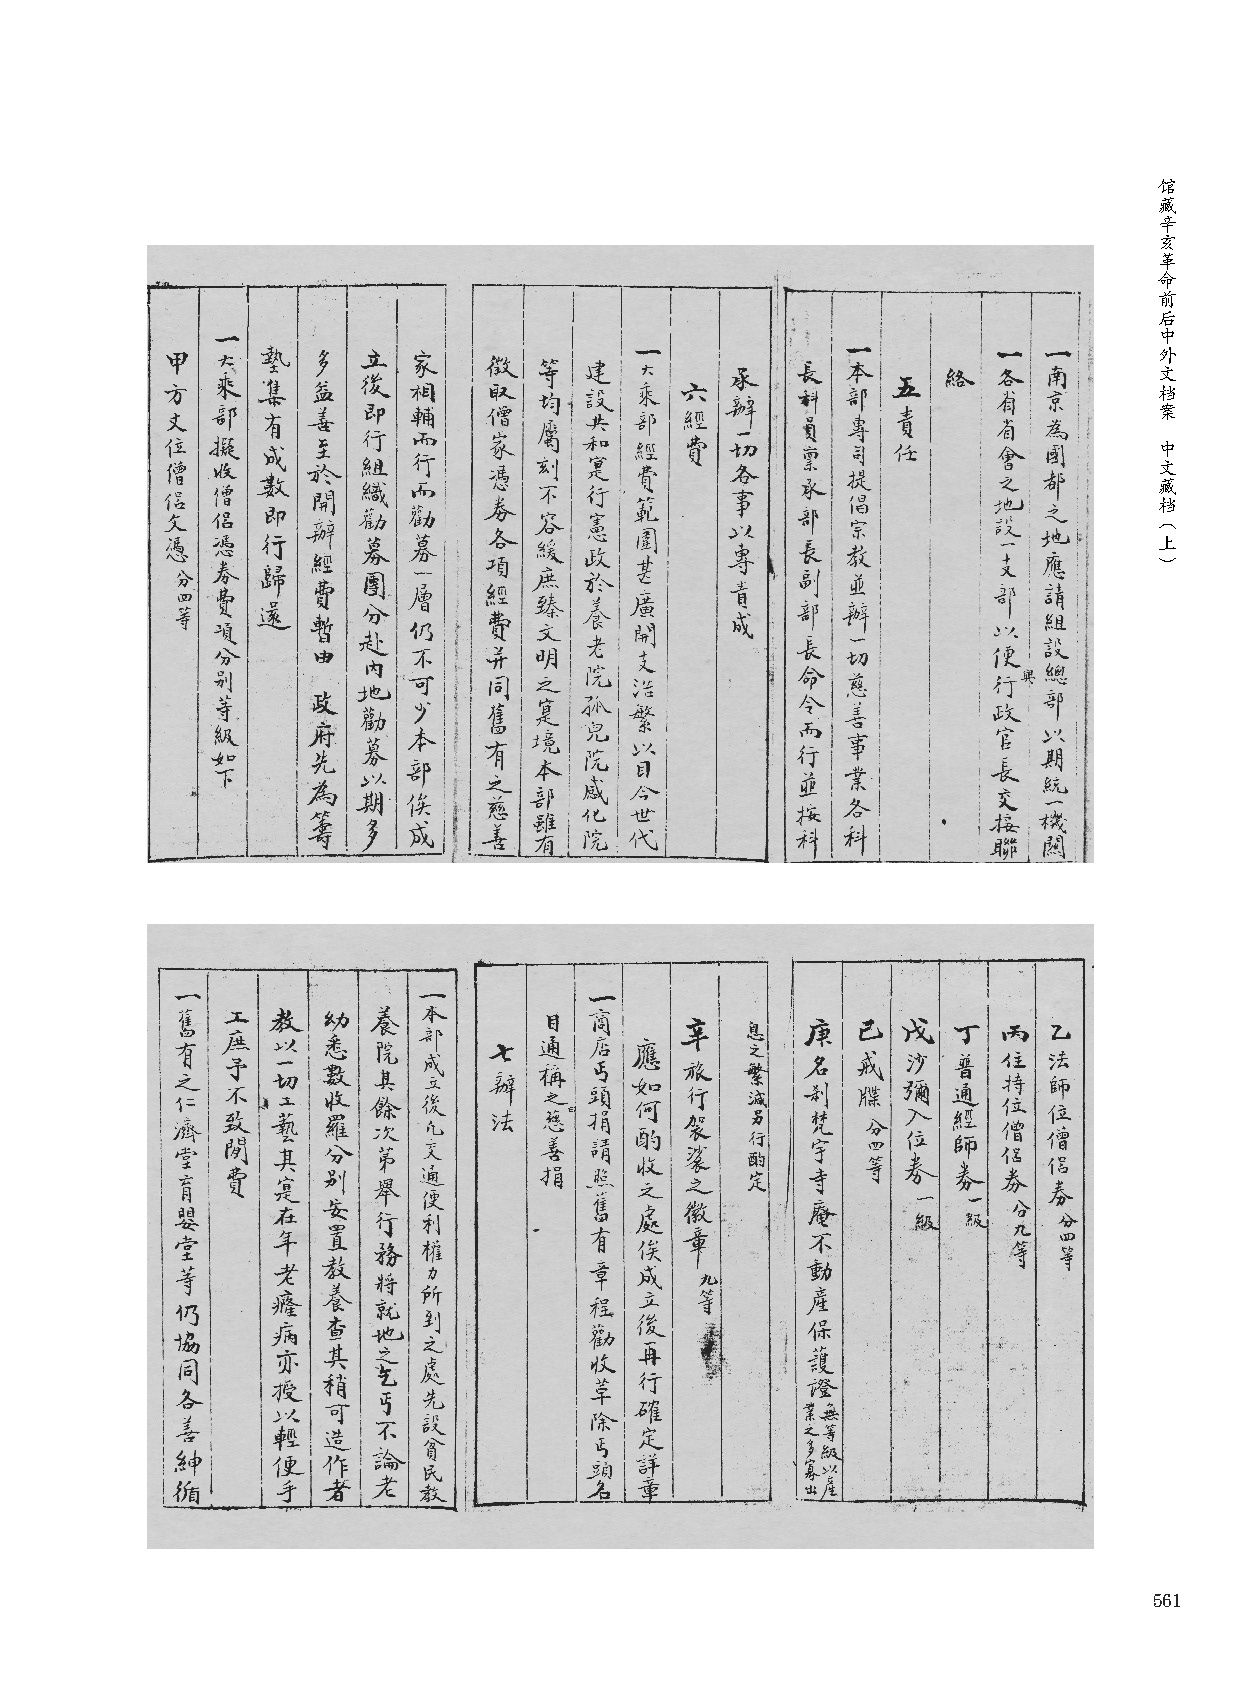 馆藏辛亥革命前后中外文档案 中文藏档（上）
一南京為國都之地應請組設總部以期統一機關
一各省省會之地設一支部以便與行政官長交接聯
絡
五責任
一本部專司提倡宗教並辦一切慈善事業各科
長科員稟承部長副部長命令而行並按科
承辦一切各事以專責成
六經費
一大乘部經費範圍甚廣開支浩繁以目今世代
建設共和寔行憲政於養老院孤兒院感化院
等均屬刻不容緩庶臻文明之寔境本部雖有
徵取僧家憑券各項經費并同舊有之慈善
家相輔而行而勸募一層仍不可少本部俟成
立後即行組織勸募團分赴內地勸募以期多
多益善至於開辦經費暫由 政府先為籌
墊集有成數即行歸還
一大乘部擬收僧侶憑券費項分別等級如下
甲方丈位僧侶文憑分四等
乙法師位僧侶券分四等
丙住持位僧侶券分九等
丁普通經師券一級
戊沙彌入位券一級
己戒牒分四等
庚名刹梵宇寺庵不動產保護證無等級以產業之多寡出
息之繁減另行酌定
辛旅行袈裟之徽章九等
應如何酌收之處俟成立後再行確定詳章
一商店丐頭捐請照舊有章程勸收草除丐頭名
目通稱之曰慈善捐
七辦法
一本部成立後凡交通便利權力所到之處先設貧民教
養院其餘次第舉行務將就地之乞丐不論老
幼悉數收羅分別安置教養查其稍可造作者
教以一切工藝其寔在年老癃病亦授以輕便手
工庶予不致閒費
一舊有之仁濟堂育嬰堂等仍協同各善紳循
561